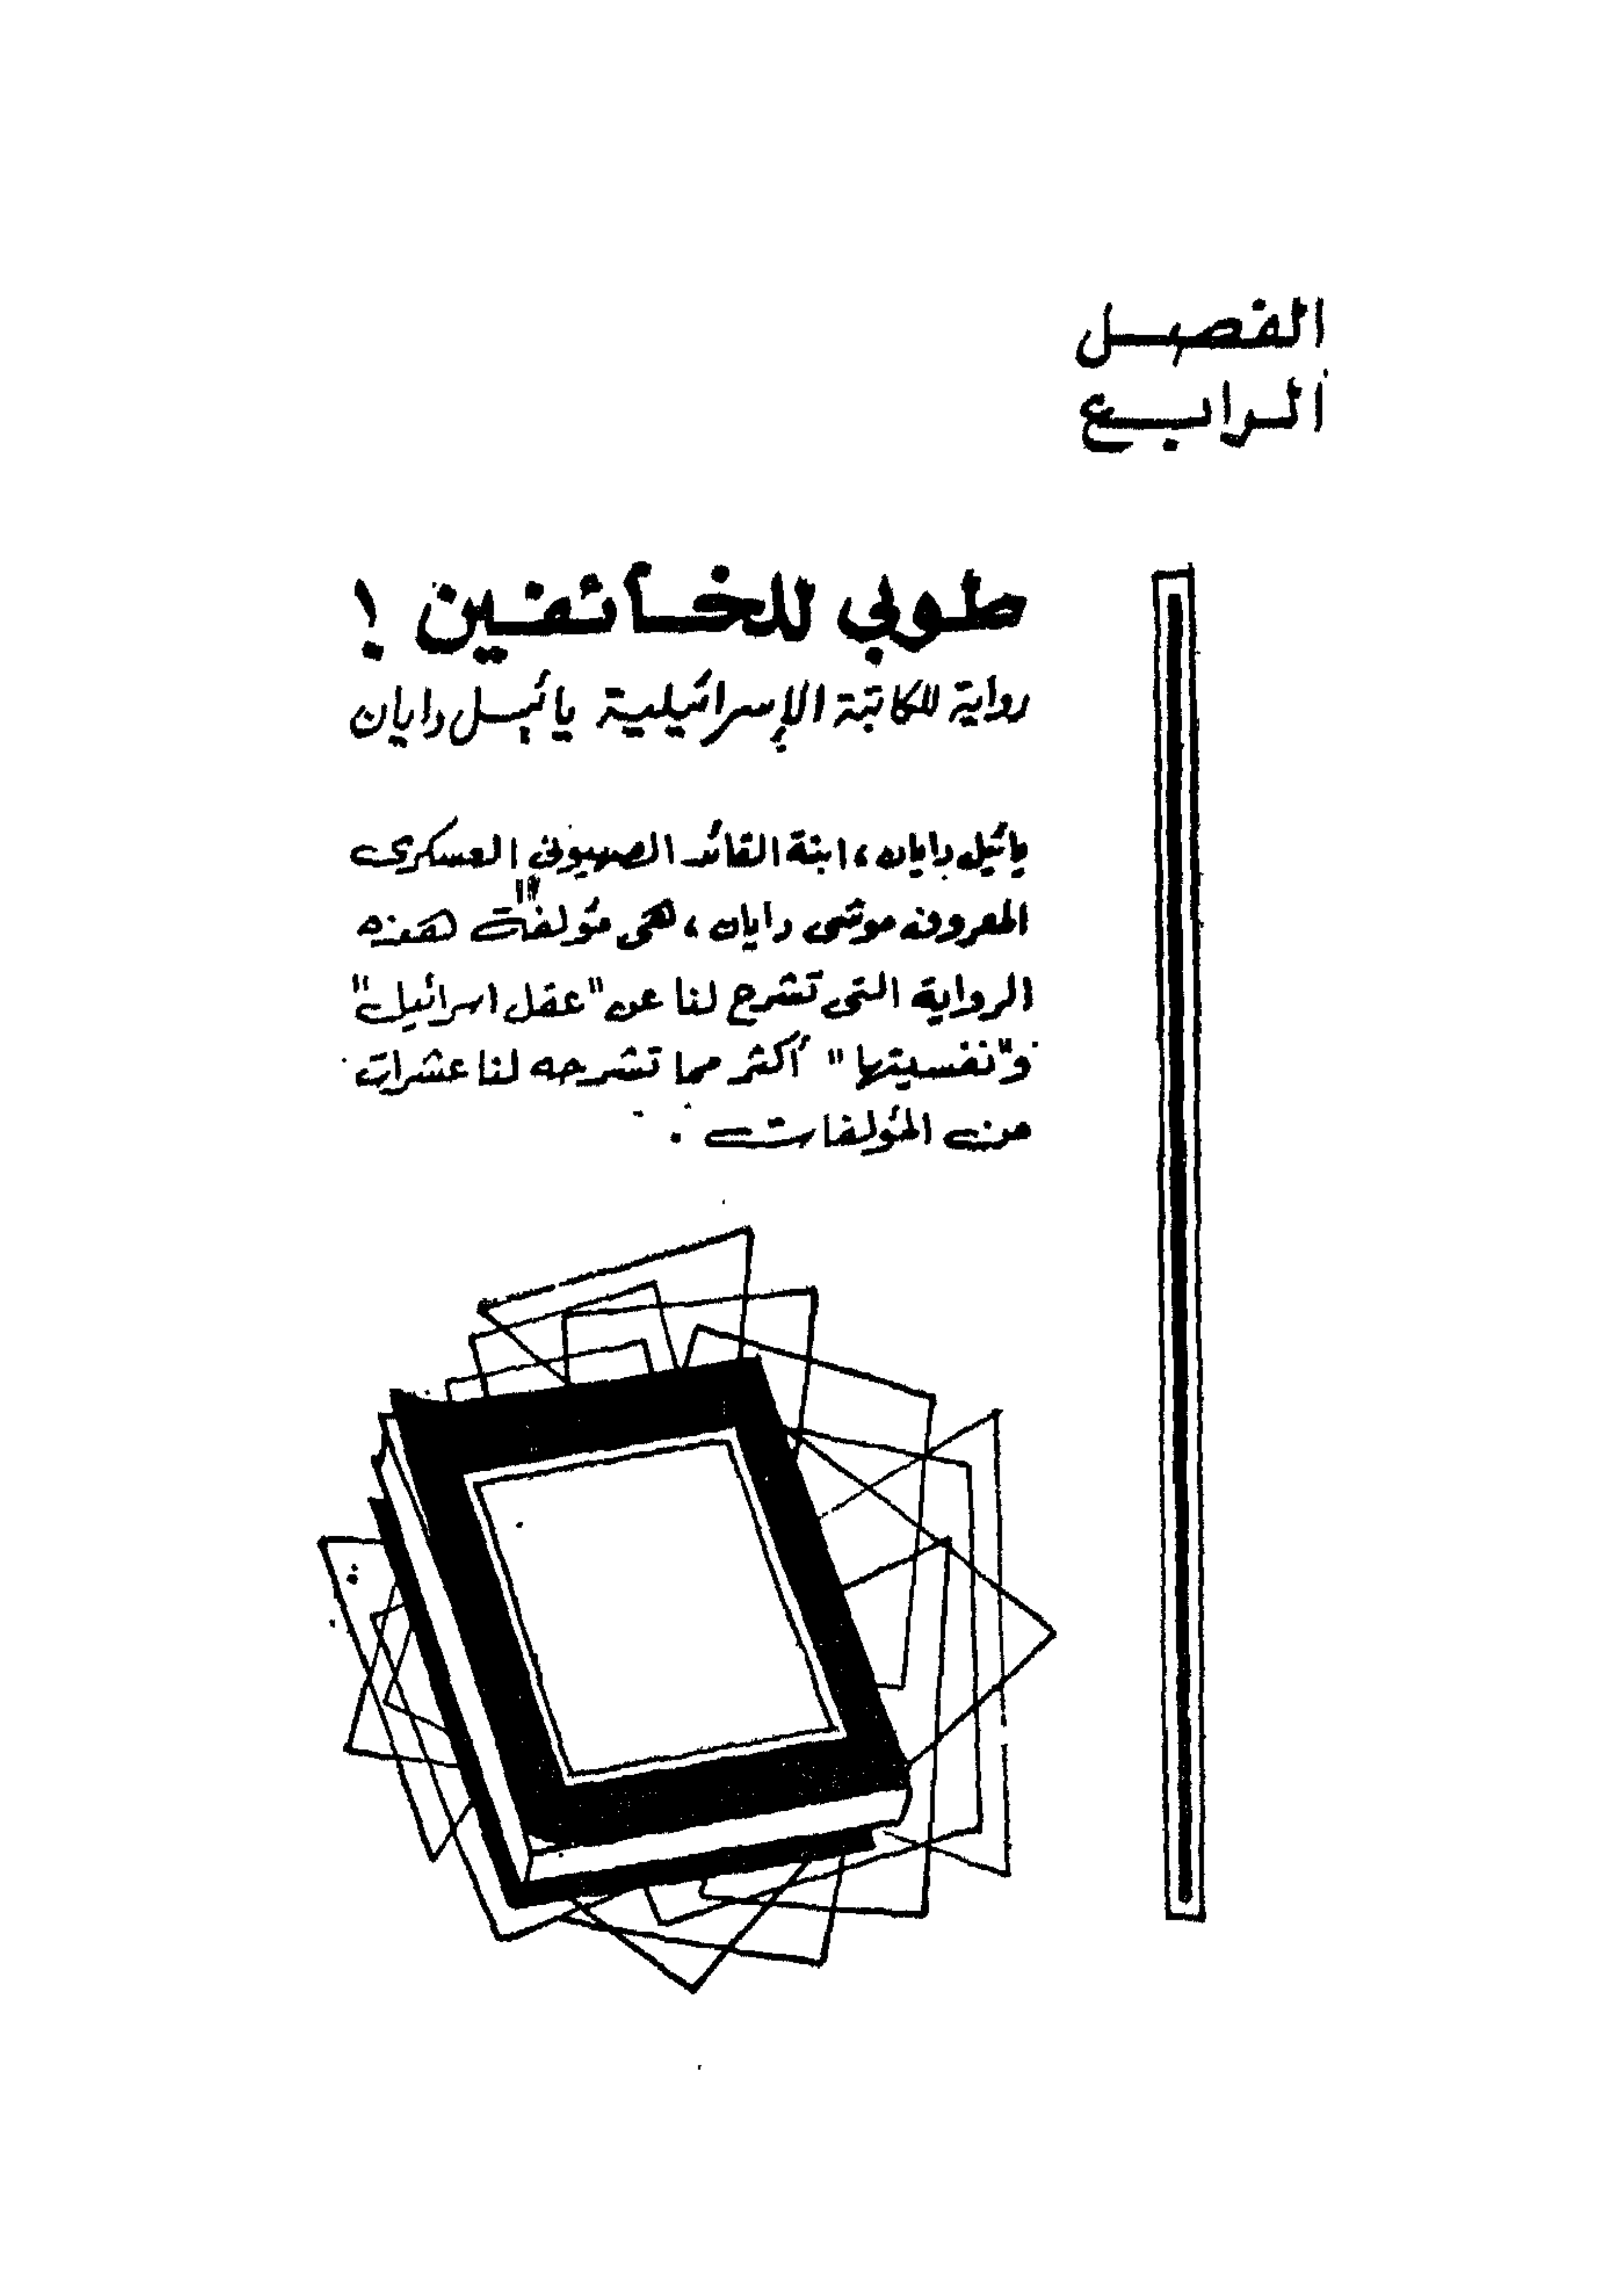 الفصل
الرابع
طوبى للخائفين !
رواية للكاتبة الإسرائيلية يائيل دايان
يائيل دايان ، ابنة القائد الصهيوني العسكرى
المعروف موشى دايان ، هى مؤلفة هذه
الرواية التى تشرح لنا عن "عقل اسرائيل"
و"نفسيتها" أكثر مما تشرحه لنا عشرات
من المؤلفات .